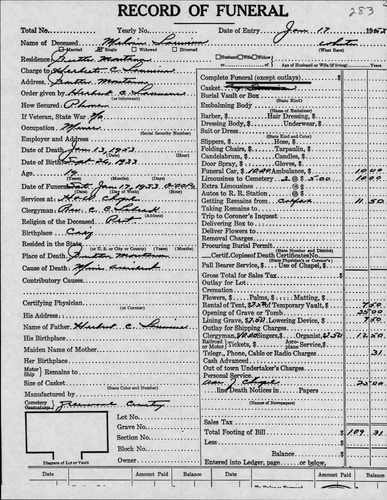 RECORD OF FUNERAL
283
Total No. Yearly No. Date of Entry Jan 17 1953
Name of Deceased Melvin
Married Single Widowed Divorced (What Race)
Residence Husband Wife or Widow of
Charge to Herbert C.
Address (Age of Husband or Wife (if living)
Order given by Herbert C.
How Secured Phone
If Veteran, State War No
Occupation Miner (Social Security Number)
Employer and Address
Date of Death Jan 13, 1953 (Hour)
Date of Birth Sept 26, 1933
Age 19 Years Months Days
Date of Funeral Sat Jan 17, 1953
Services at Chapel
Clergyman Rev. C. C.
Religion of the Deceased Prot
Birthplace
Resided in the State (or U. S. or City or County) (Years or Months)
Place of Death
Cause of Death Mine accident
Contributory Causes
Certifying Physician (or Coroner)
His Address
Name of Father Herbert C.
His Birthplace
Maiden Name of Mother
Her Birthplace
Motor Ship Remains to
Size of Casket (State Color and Number)
Manufactured by
Cemetery Crematory County
Lot No.
Grave No.
Section No.
Block No.
Owner
Diagram of Lot or Vault
Complete Funeral (except outlays)
Casket
Burial Vault or Box (State Kind)
Embalming Body (Name of Embalmer)
Barber, $ Hair Dressing, $
Dressing Body, $ Underwear, $
Suit or Dress (State Kind and Color)
Slippers, $ Hose, $
Folding Chairs, $ Tarpaulin, $
Candelabrum, $ Candles, $
Door Spray, $ Gloves, $
Funeral Car, $ 10.00 Ambulance $ 10.00
Limousines to Cemetery 2 @ $ 5.00 10.00
Extra Limousines @ $
Autos to R. R. Station @ $
Getting Remains from 11.50
Taking Remains to
Trip to Coroner's Inquest
Delivering Box to
Deliver Flowers to
Removal Charges
Procuring Burial Permit
Certif. Copies of Death Certificates No.
(State Physician's or Coroner's)
Pall Bearer Service, $ Use of Chapel, $
Gross Total for Sales Tax $
Outlay for Lot
Cremation
Flowers, $ Palms, $ Matting, $
Rental of Tent, $ Temporary Vault, $ 7.50
Opening of Grave or Tomb 35.00
Lining Grave, $ 2.50 Lowering Device, $ 7.50
Outlay for Shipping Charges
Clergyman, 10.00 Singers, $ Organist, $ 2.50 12.50
Railroad Motor Tickets, $ Aeroplane Service, $
Telegr., Phone, Cable or Radio Charges $ .31
Cash Advanced
Out of town Undertaker's Charges
Personal Service
Chapel 25.00
line Death Notices in Papers
(Names of Newspapers)
Sales Tax
Total Footing of Bill $ 109.31
Less
Balance
Entered into Ledger, page or below.
Date Amount Paid Balance Date Amount Paid Balance